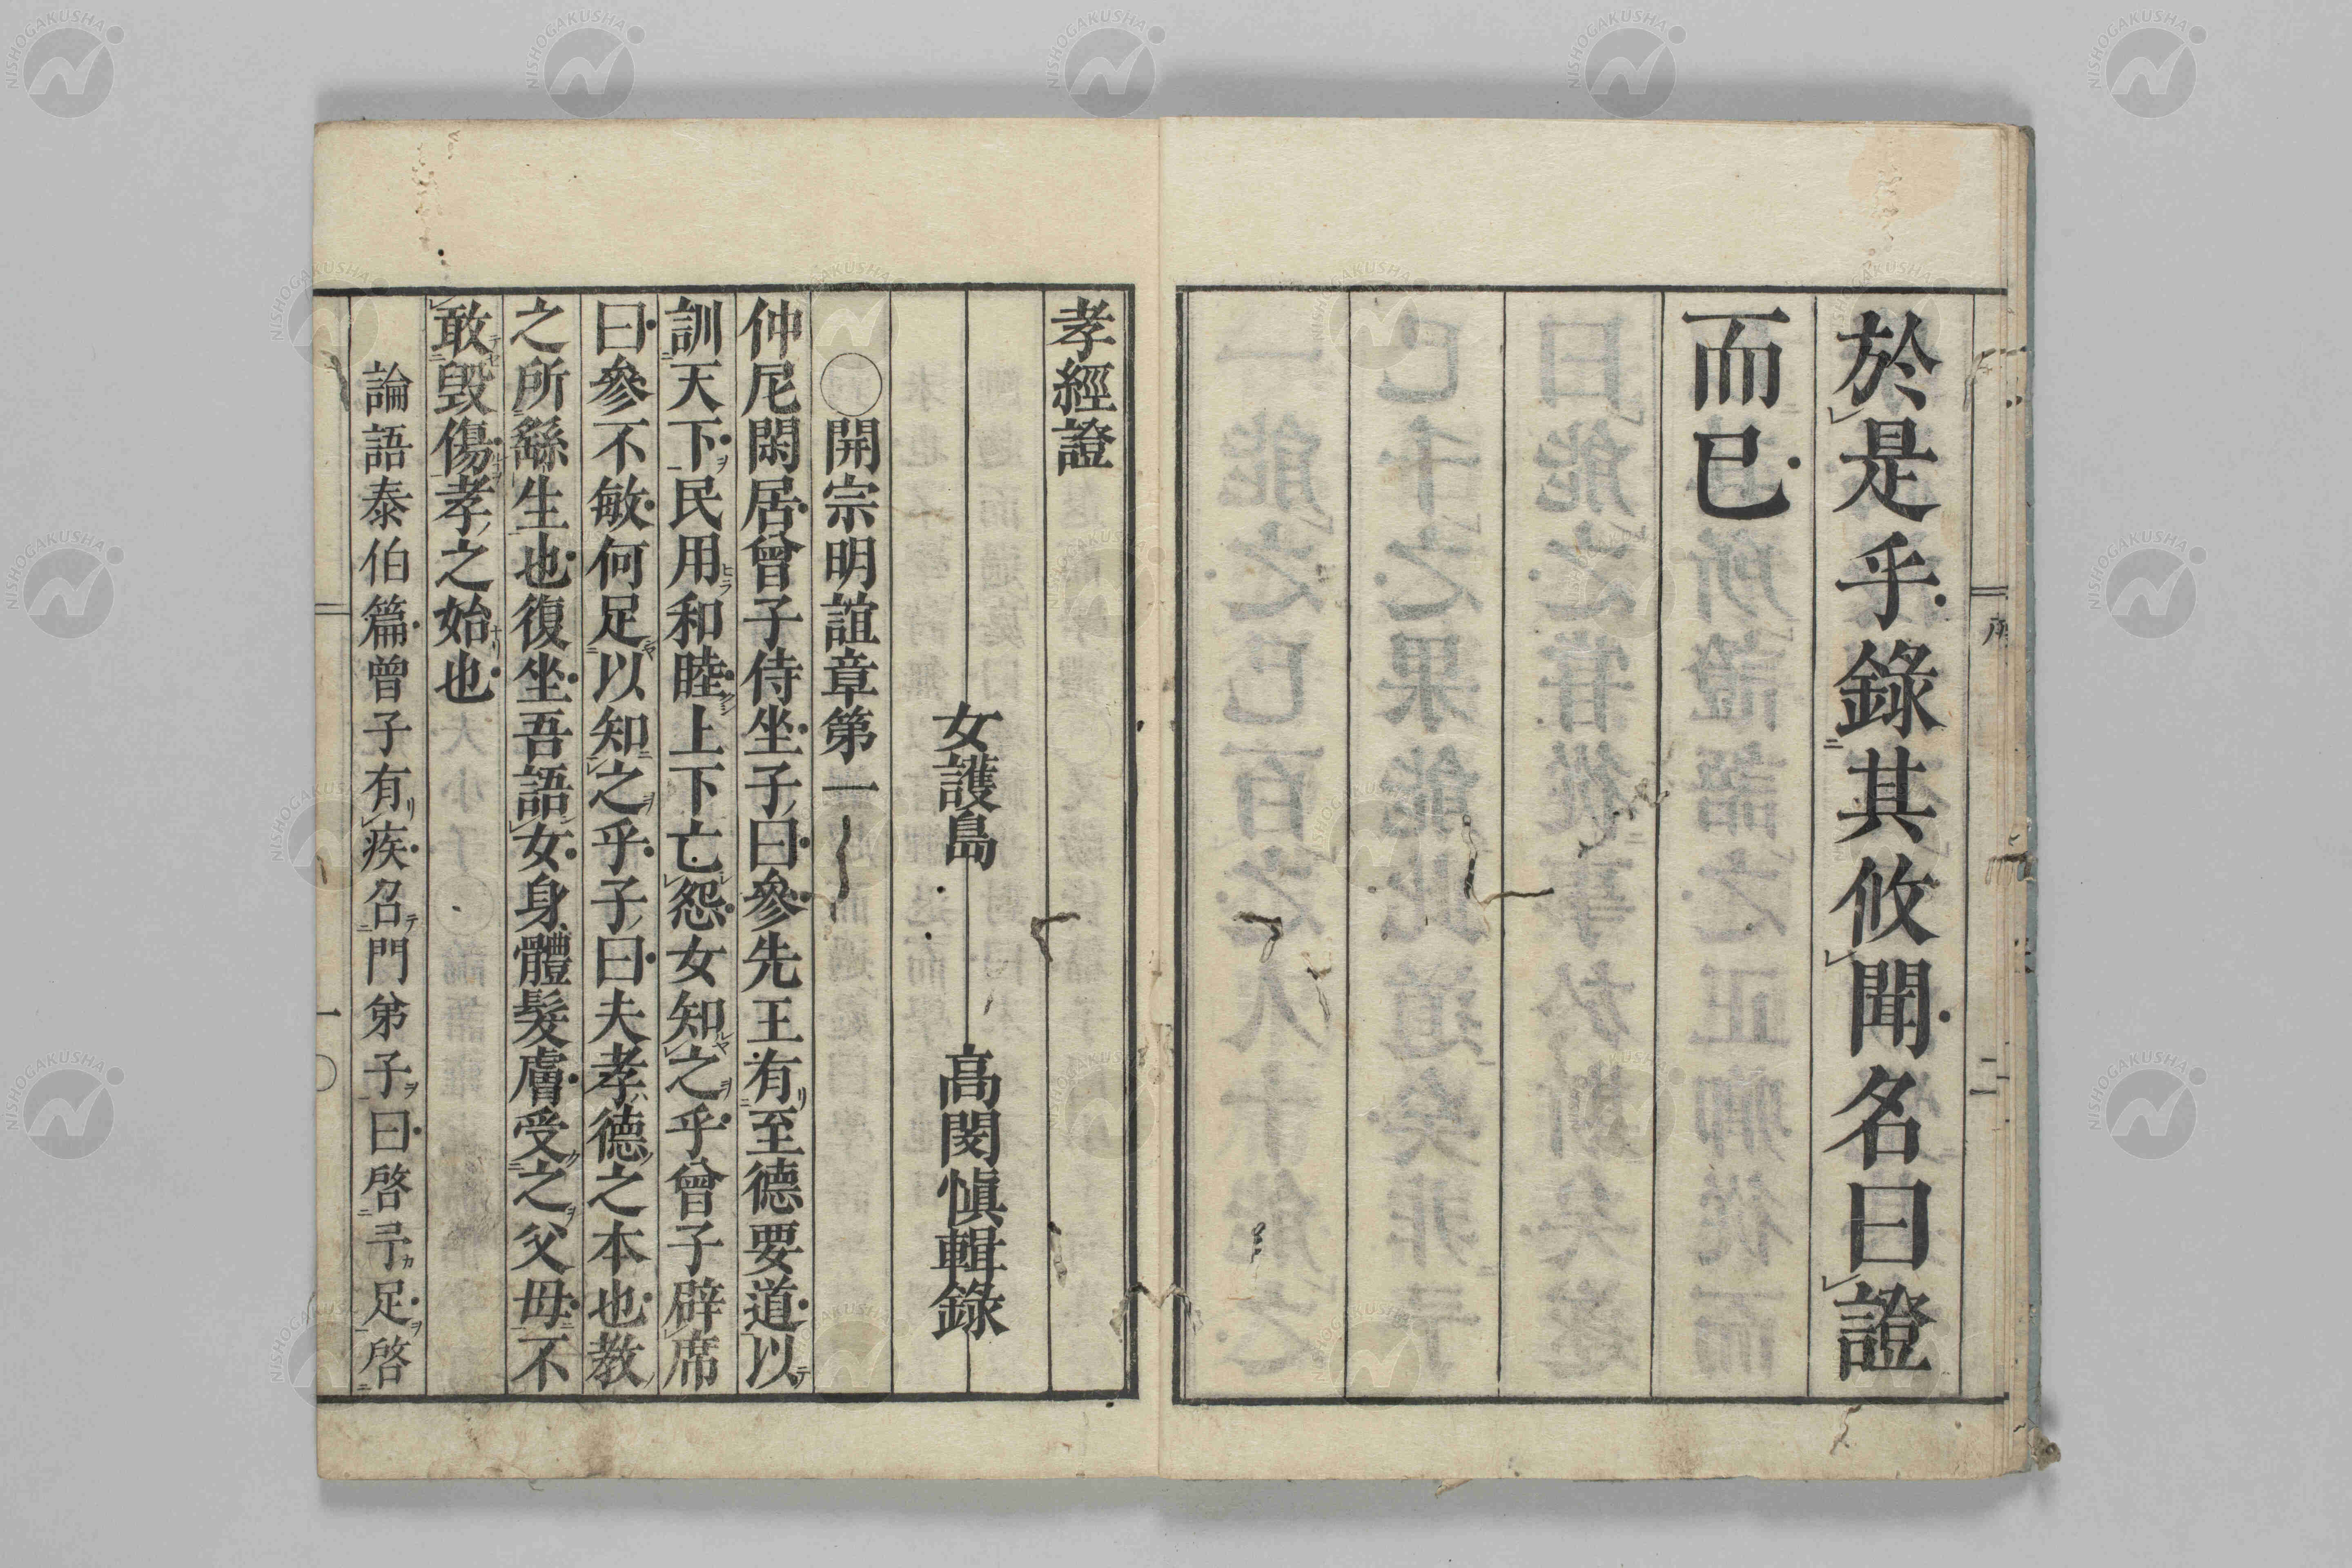 於是乎錄其攸聞名曰證
而已
序
二
孝經證
女護島　高閔愼輯錄
○開宗明誼章第一
仲尼閑居曾子侍坐子曰參先王有至德要道以
訓天下民用和睦上下亡怨女知之乎曾子辟席
曰參不敏何足以知之乎子曰夫孝德之本也教
之所繇生也復坐吾語女身體髮膚受之父母不
敢毀傷孝之始也
論語泰伯篇曾子有疾召門弟子曰啓予足啓
一